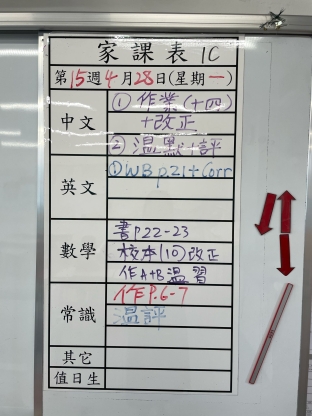 家課表 1C
第15週4月28日(星期一)
中文
① 作業(十四)
+改正
② 溫默+評
英文
① WB p.21+Corr
數學
書P22-23
校本(10)改正
作A+B溫習
常識
作P.6-7
溫評
其它
值日生